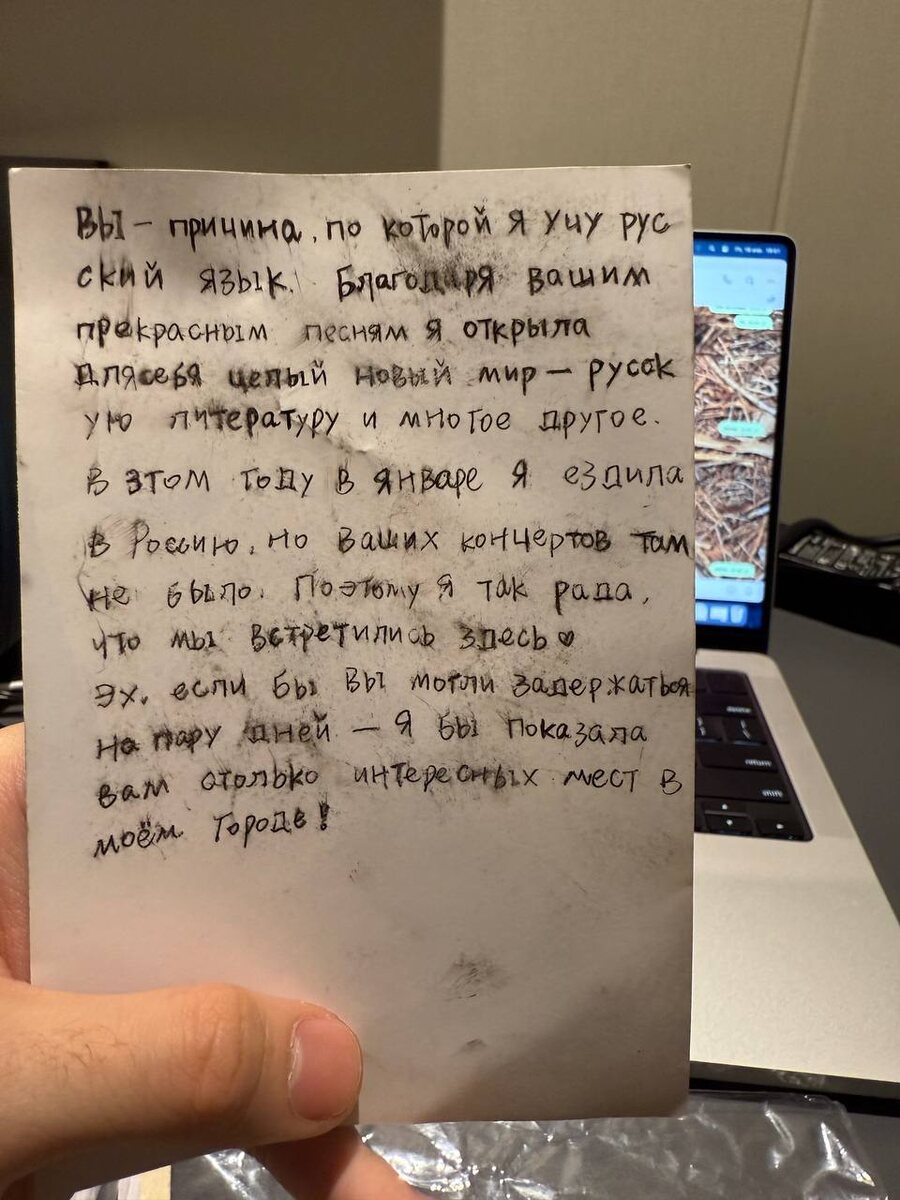 Вы – причина, по которой я учу рус
ский язык. Благодаря вашим
прекрасным песням я открыла
для себя целый новый мир – русск
ую литературу и многое другое.
В этом году в январе я ездила
в Россию, но ваших концертов там
не было. Поэтому я так рада,
что мы встретились здесь ♥
Эх, если бы вы могли задержаться
на пару дней – я бы показала
вам столько интересных мест в
моём городе!
delete
return
shift